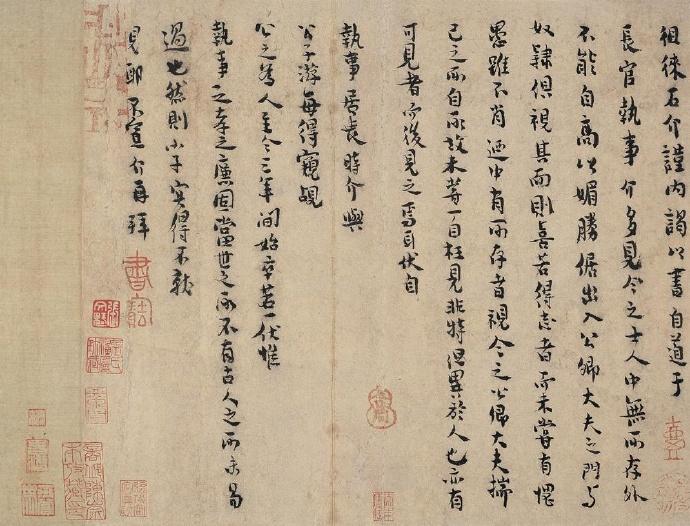 徂徠石介謹內謁以書自道于
長官執事介多見今之士人中無所存外
不能自高以媚勝倨出入公卿大夫之門与
奴隸俱視其面則喜若得志者而未嘗有愠
愚雖不肖迺中有所存者視今之公卿大夫揣
己之所自所故未嘗一自枉見非特但異於人也亦有
可見者而後見之焉自伏自
執事居喪時介與
公子游每得窺覘
公之為人至今三年間始卒若一伏惟
執事之孝之廉固當世之所不有古人之所未易
過也然則小子實得不就
見邪不宣介再拜